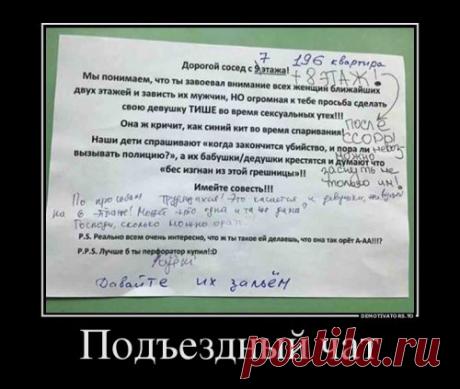 7 196 квартира
Дорогой сосед с 9 этажа!
+ 8 ЭТАЖ!
Мы понимаем, что ты завоевал внимание всех женщин ближайших
двух этажей и зависть их мужчин, НО огромная к тебе просьба сделать
свою девушку ТИШЕ во время сексуальных утех!!!
ПОСЛЕ
ССОРЫ
Она ж кричит, как синий кит во время спаривания!
Наши дети спрашивают «когда закончится убийство, и пора ли
вызывать полицию?», а их бабушки/дедушки крестятся и думают что
«бес изгнан из этой грешницы»!!
невоз
можно
заснуть не
только им!
Имейте совесть!!!
Это касается и девушки,
на 6 этаже! Может это одна и та же дама?
Господи, сколько можно орать
P.S. Реально всем очень интересно, что ж ты такое ей делаешь, что она так орёт А-АА!!!?
P.P.S. Лучше б ты перфоратор купил!:D
Давайте их зальём
DEMOTIVATORS.TO
Подъездный чат
postila.ru